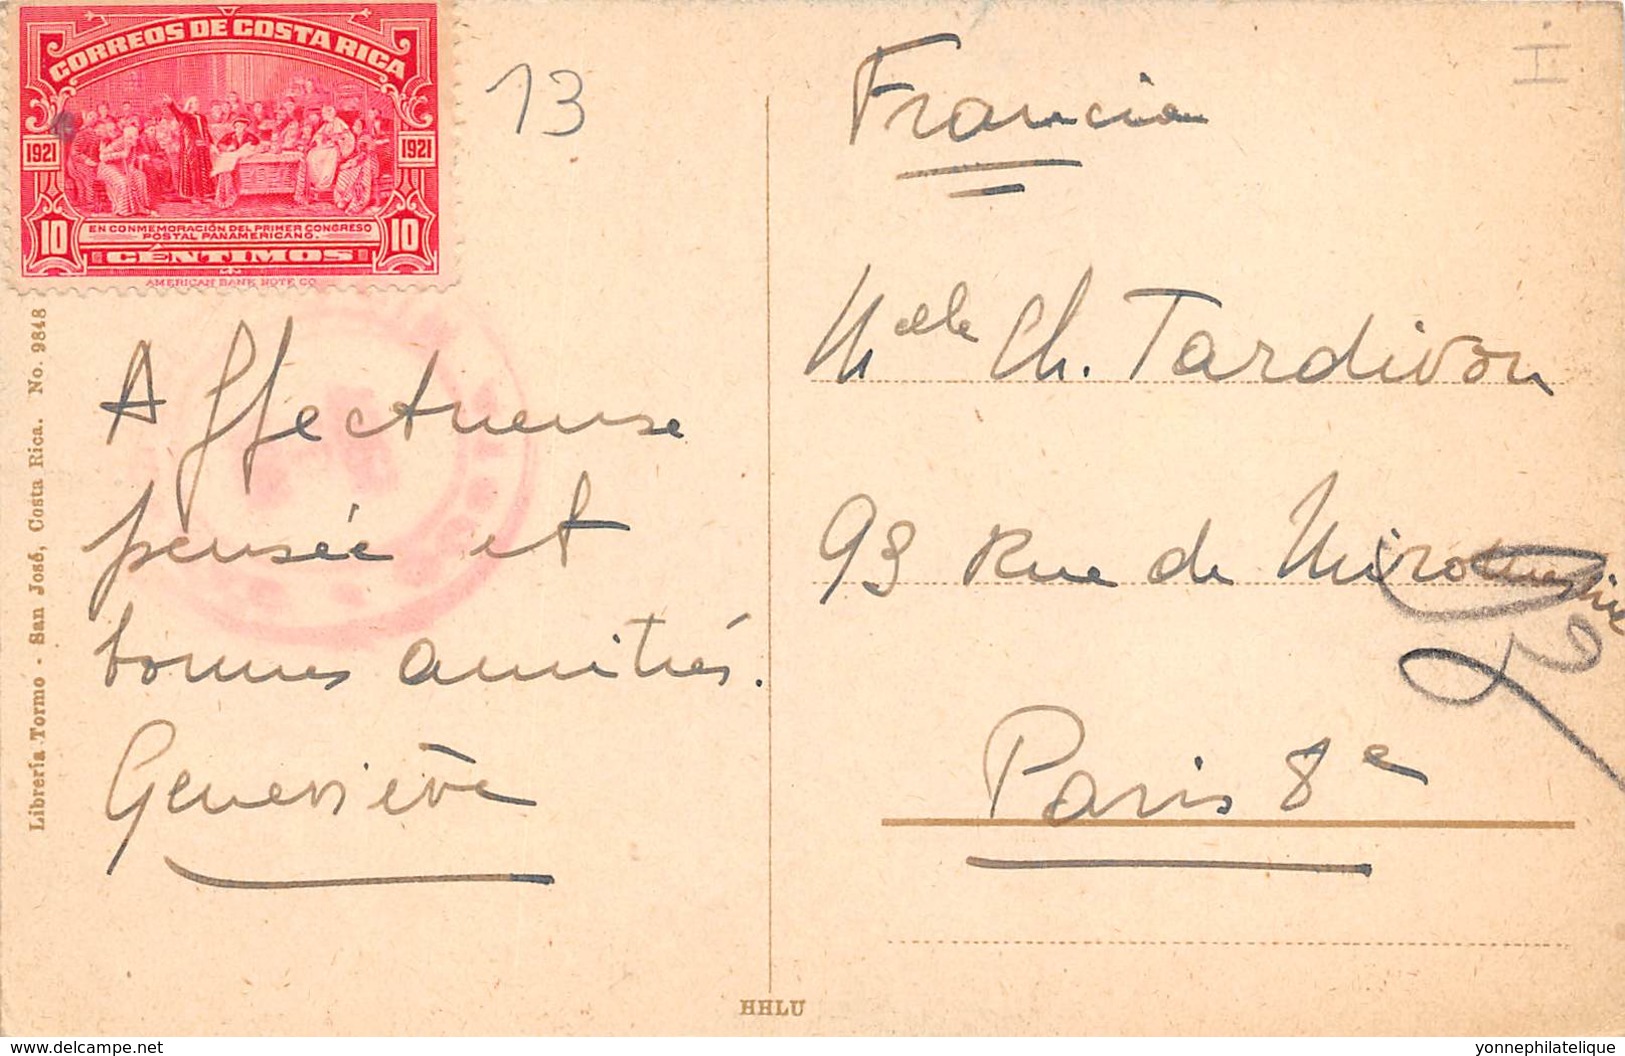 CORREOS DE COSTA RICA
1921 1921
10 10
EN CONMEMORACIÓN DEL PRIMER CONGRESO
POSTAL PANAMERICANO.
CÉNTIMOS
AMERICAN BANK NOTE CO
13
Librería Tormo - San José, Costa Rica. No. 9848
Affectueuse
pensée et
bonnes amitiés.
Geneviève
Francia
Melle Ch. Tardivon
93 Rue de Miromesnil
Paris 8e
HHLU
www.delcampe.net
yonnephilatelique